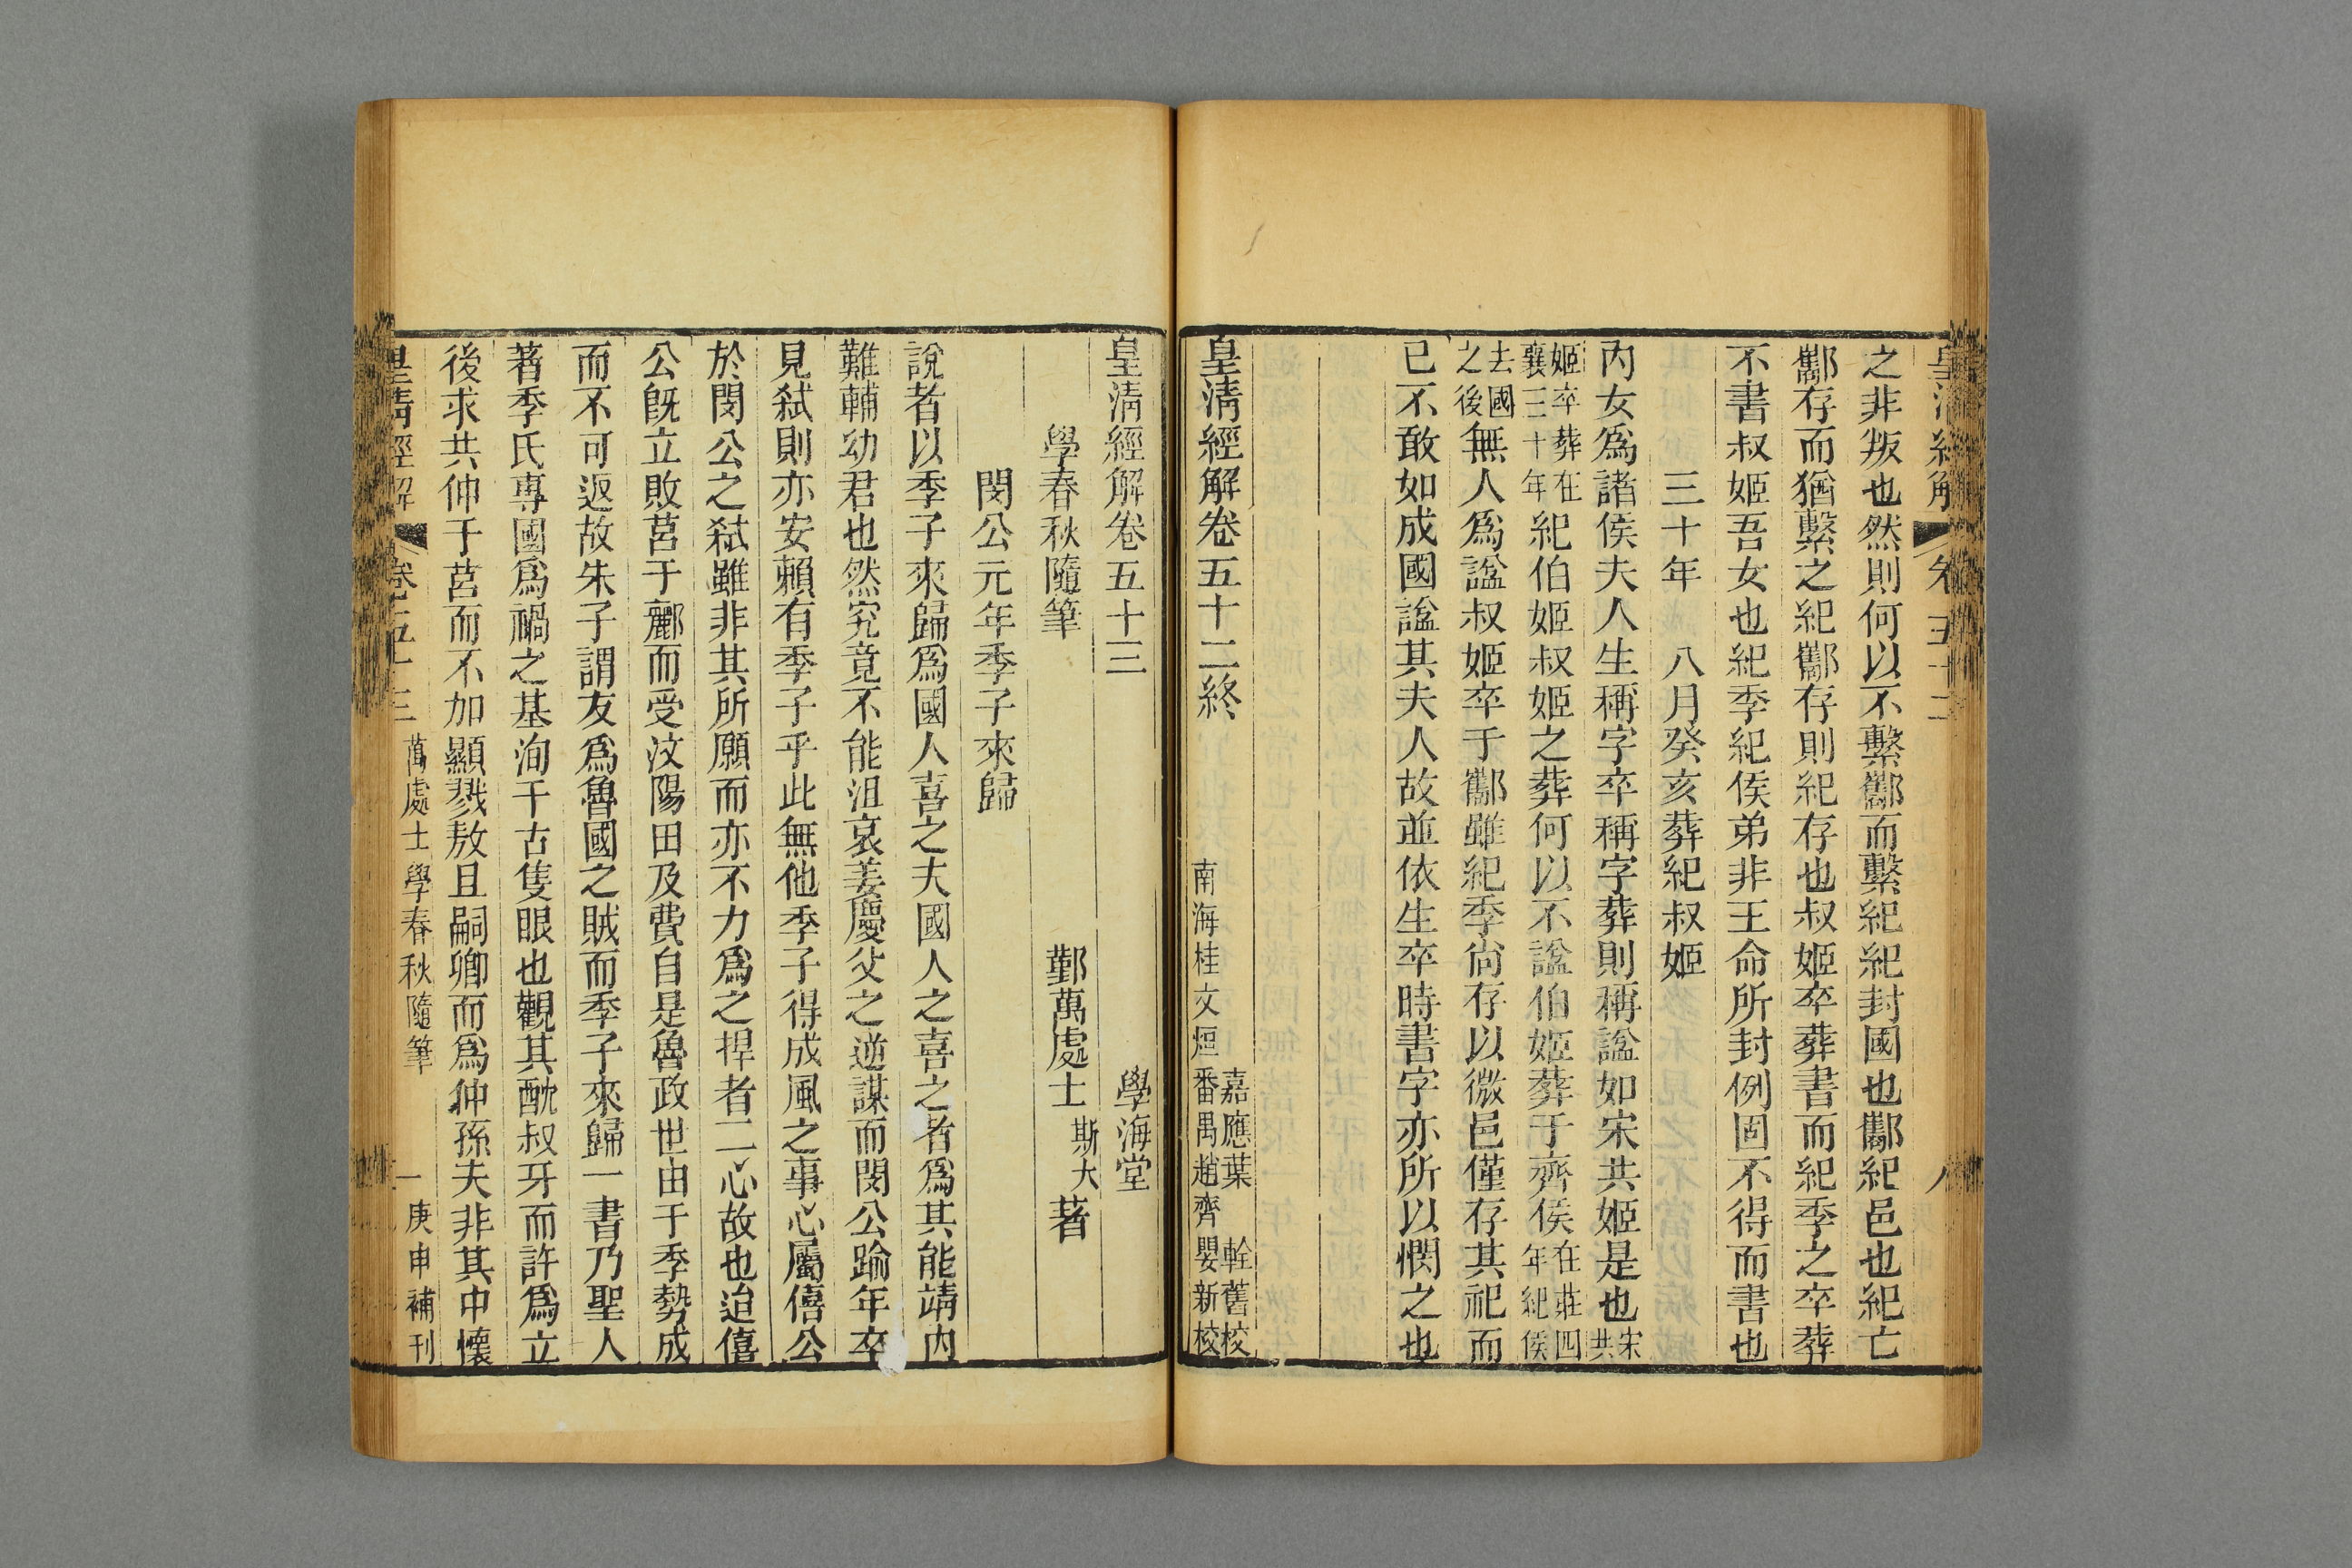 皇清經解 卷五十二 八
之非叛也然則何以不繫酅而繫紀紀封國也酅紀邑也紀亡
酅存而猶繫之紀酅存則紀存也叔姬卒葬書而紀季之卒葬
不書叔姬吾女也紀季紀侯弟非王命所封例固不得而書也
三十年 八月癸亥葬紀叔姬
內女爲諸侯夫人生稱字卒稱字葬則稱諡如宋共姬是也宋共
姬卒葬在襄三十年紀伯姬叔姬之葬何以不諡伯姬葬于齊侯在莊四年紀侯
去國之後無人爲諡叔姬卒于酅雖紀季尙存以微邑僅存其祀而
已不敢如成國諡其夫人故並依生卒時書字亦所以憫之也
皇清經解卷五十二終
嘉應葉 軡舊校
南海桂文烜 番禺趙齊嬰新校
皇清經解卷五十三 學海堂
學春秋隨筆 鄞萬處士斯大著
閔公元年季子來歸
說者以季子來歸爲國人喜之夫國人之喜之者爲其能靖內
難輔幼君也然究竟不能沮哀姜慶父之逆謀而閔公踰年卒
見弒則亦安賴有季子乎此無他季子得成風之事心屬僖公
於閔公之弒雖非其所願而亦不力爲之捍者二心故也迨僖
公旣立敗莒于酈而受汶陽田及費自是魯政世由于季勢成
而不可返故朱子謂友爲魯國之賊而季子來歸一書乃聖人
著季氏專國爲禍之基洵千古隻眼也觀其酖叔牙而許爲立
後求共仲于莒而不加顯戮敖且嗣卿而爲仲孫夫非其中懷
皇清經解 卷五十三 萬處士學春秋隨筆 一 庚申補刊